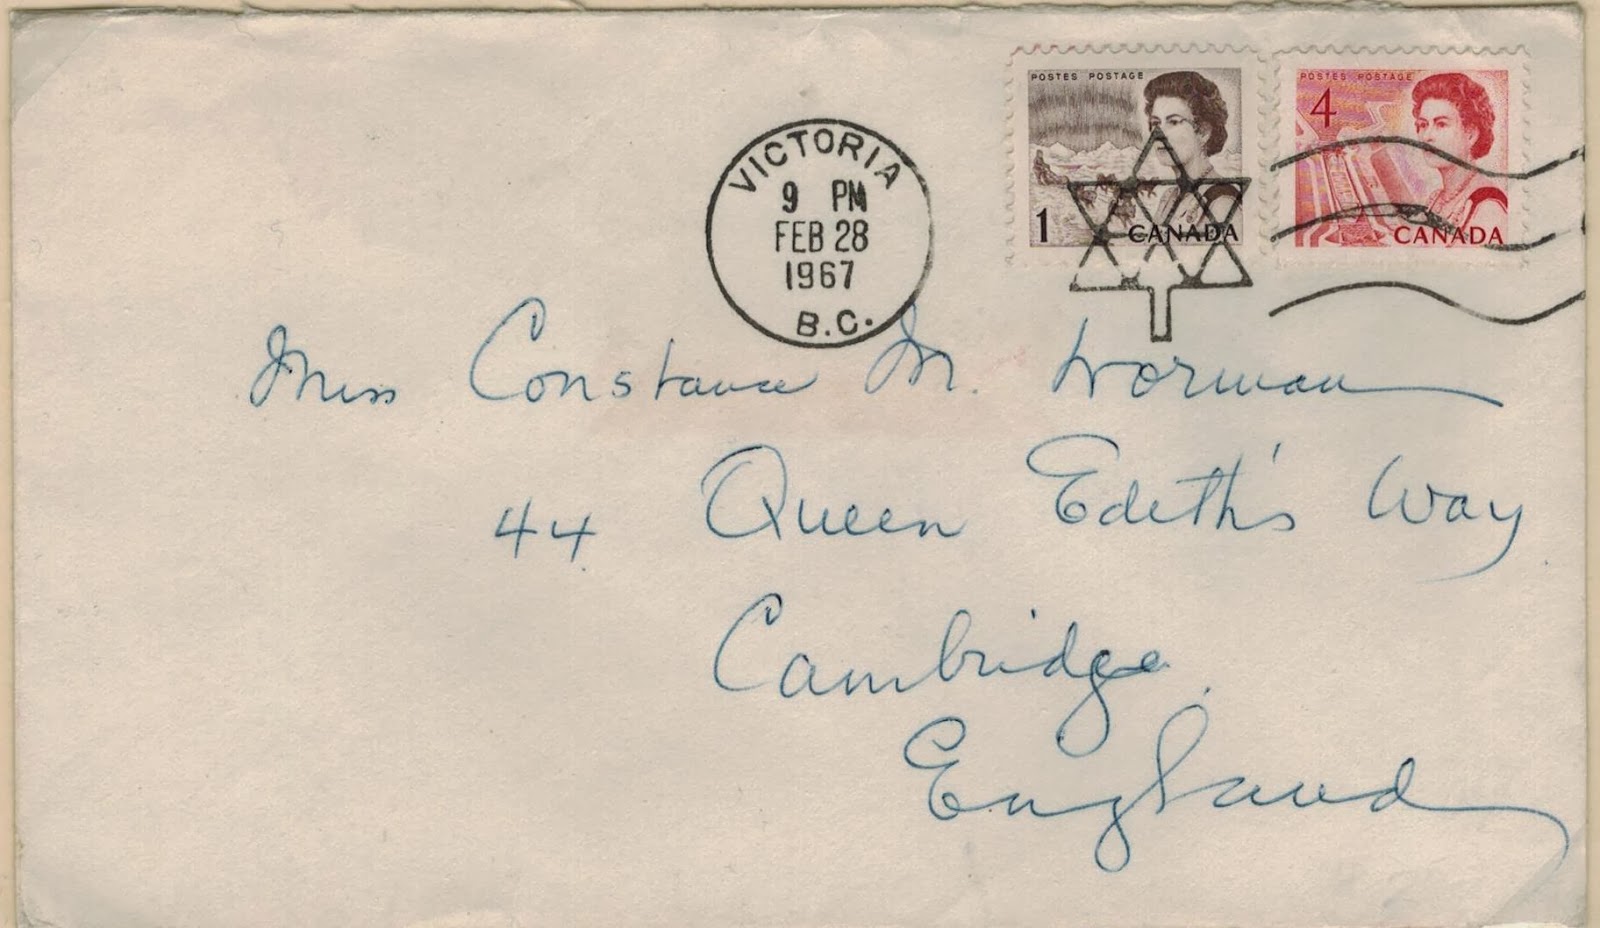 POSTES POSTAGE
1
CANADA
POSTES POSTAGE
4
CANADA
VICTORIA
9 PM
FEB 28
1967
B.C.
Miss Constance M. Worman
44 Queen Edith's Way
Cambridge
England